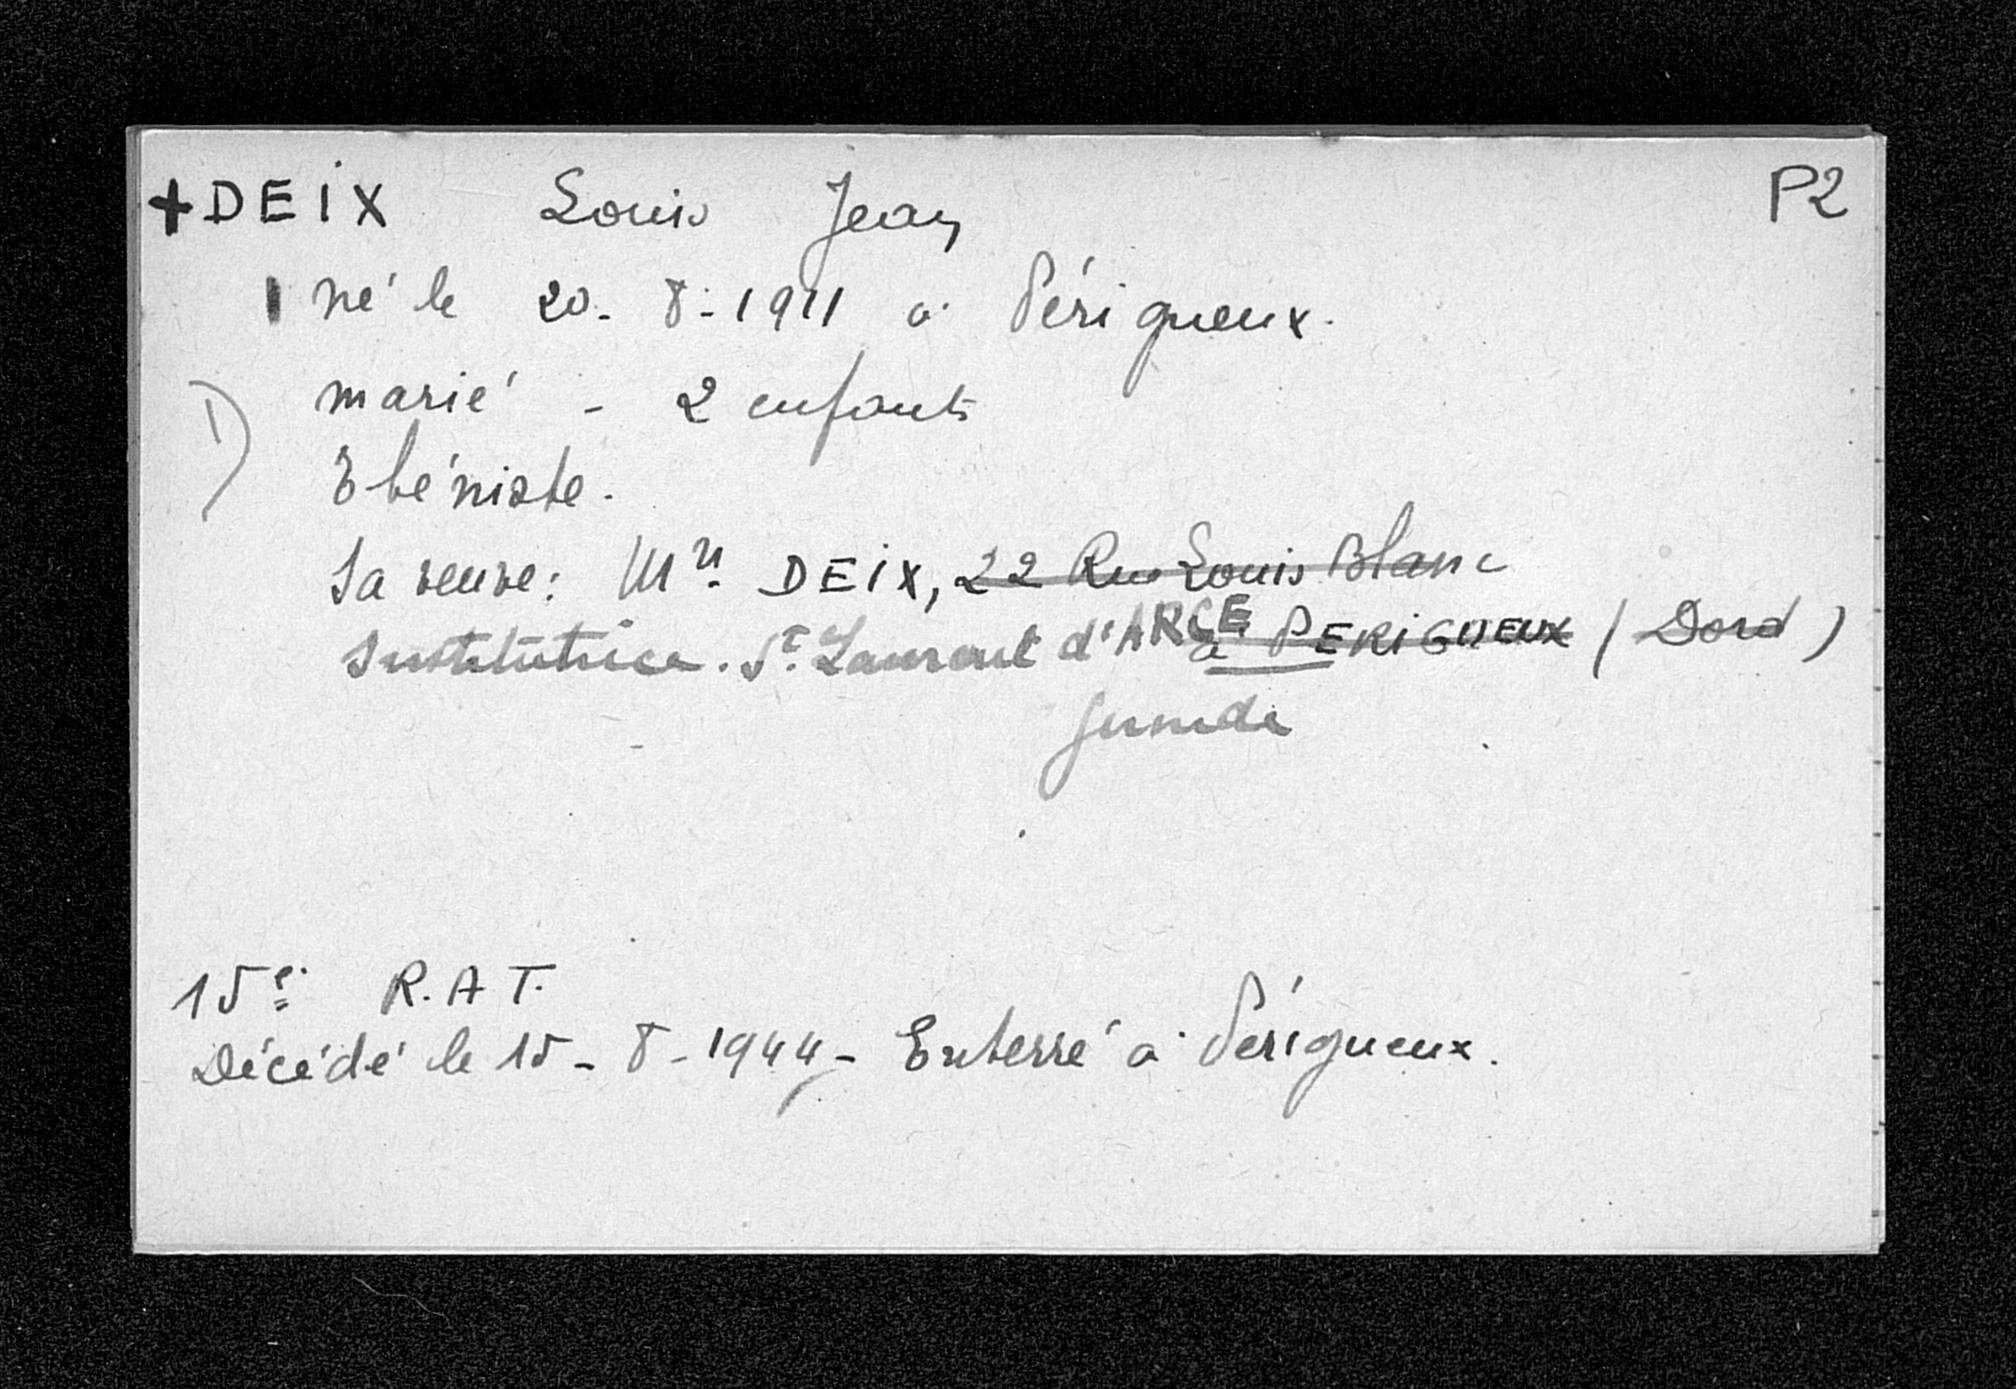 + DEIX Louis Jean P2
né le 20-8-1911 à Périgueux.
1) marié - 2 enfants
Ebéniste.
Sa veuve: Mme DEIX, 22 Rue Louis Blanc
Institutrice. St. Laurent d'ARCE à PERIGUEUX (Dord)
Gironde
15e R.A.T.
Décédé le 15-8-1944 - Enterré à Périgueux.